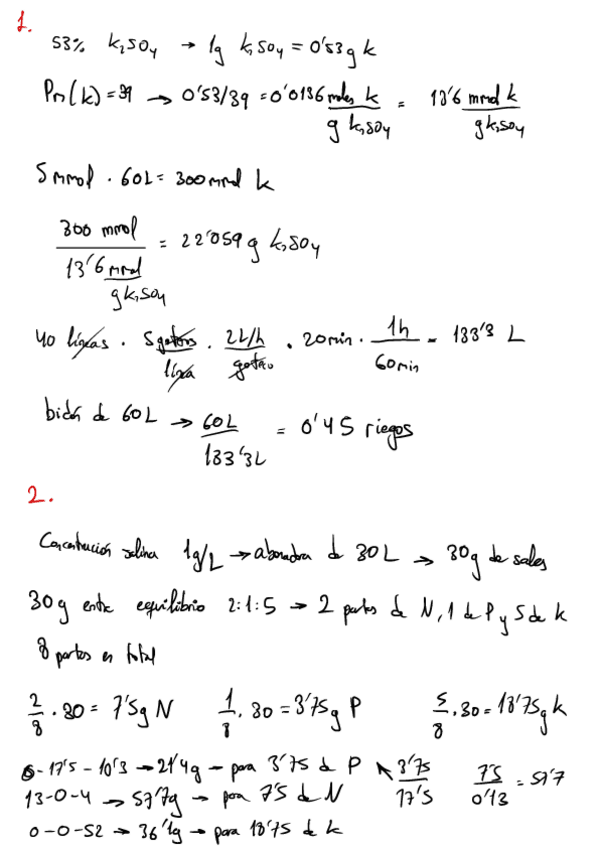 1.
53% K2SO4 → 1g K2SO4 = 0'53g K
Pm(K) = 39 → 0'53/39 = 0'0136 moles K / g K2SO4 = 13'6 mmol K / g K2SO4
5 mmol · 60L = 300 mmol K
300 mmol / 13'6 mmol / g K2SO4 = 22'059 g K2SO4
40 líneas · 5 goteros / línea · 2L/h / gotero · 20min · 1h / 60min = 133'3 L
bidón de 60L → 60L / 133'3L = 0'45 riegos
2.
Concentración salina 1g/L → abonadora de 30L → 30g de sales
30g entre equilibrio 2:1:5 → 2 partes de N, 1 de P y 5 de K
8 partes en total
2/8 · 30 = 7'5g N 1/8 · 30 = 3'75g P 5/8 · 30 = 18'75g K
0-17'5-10'3 → 21'4g → para 3'75 de P ↖ 3'75 / 17'5 7'5 / 0'13 = 57'7
13-0-4 → 57'7g → para 7'5 de N
0-0-52 → 36'1g → para 18'75 de K